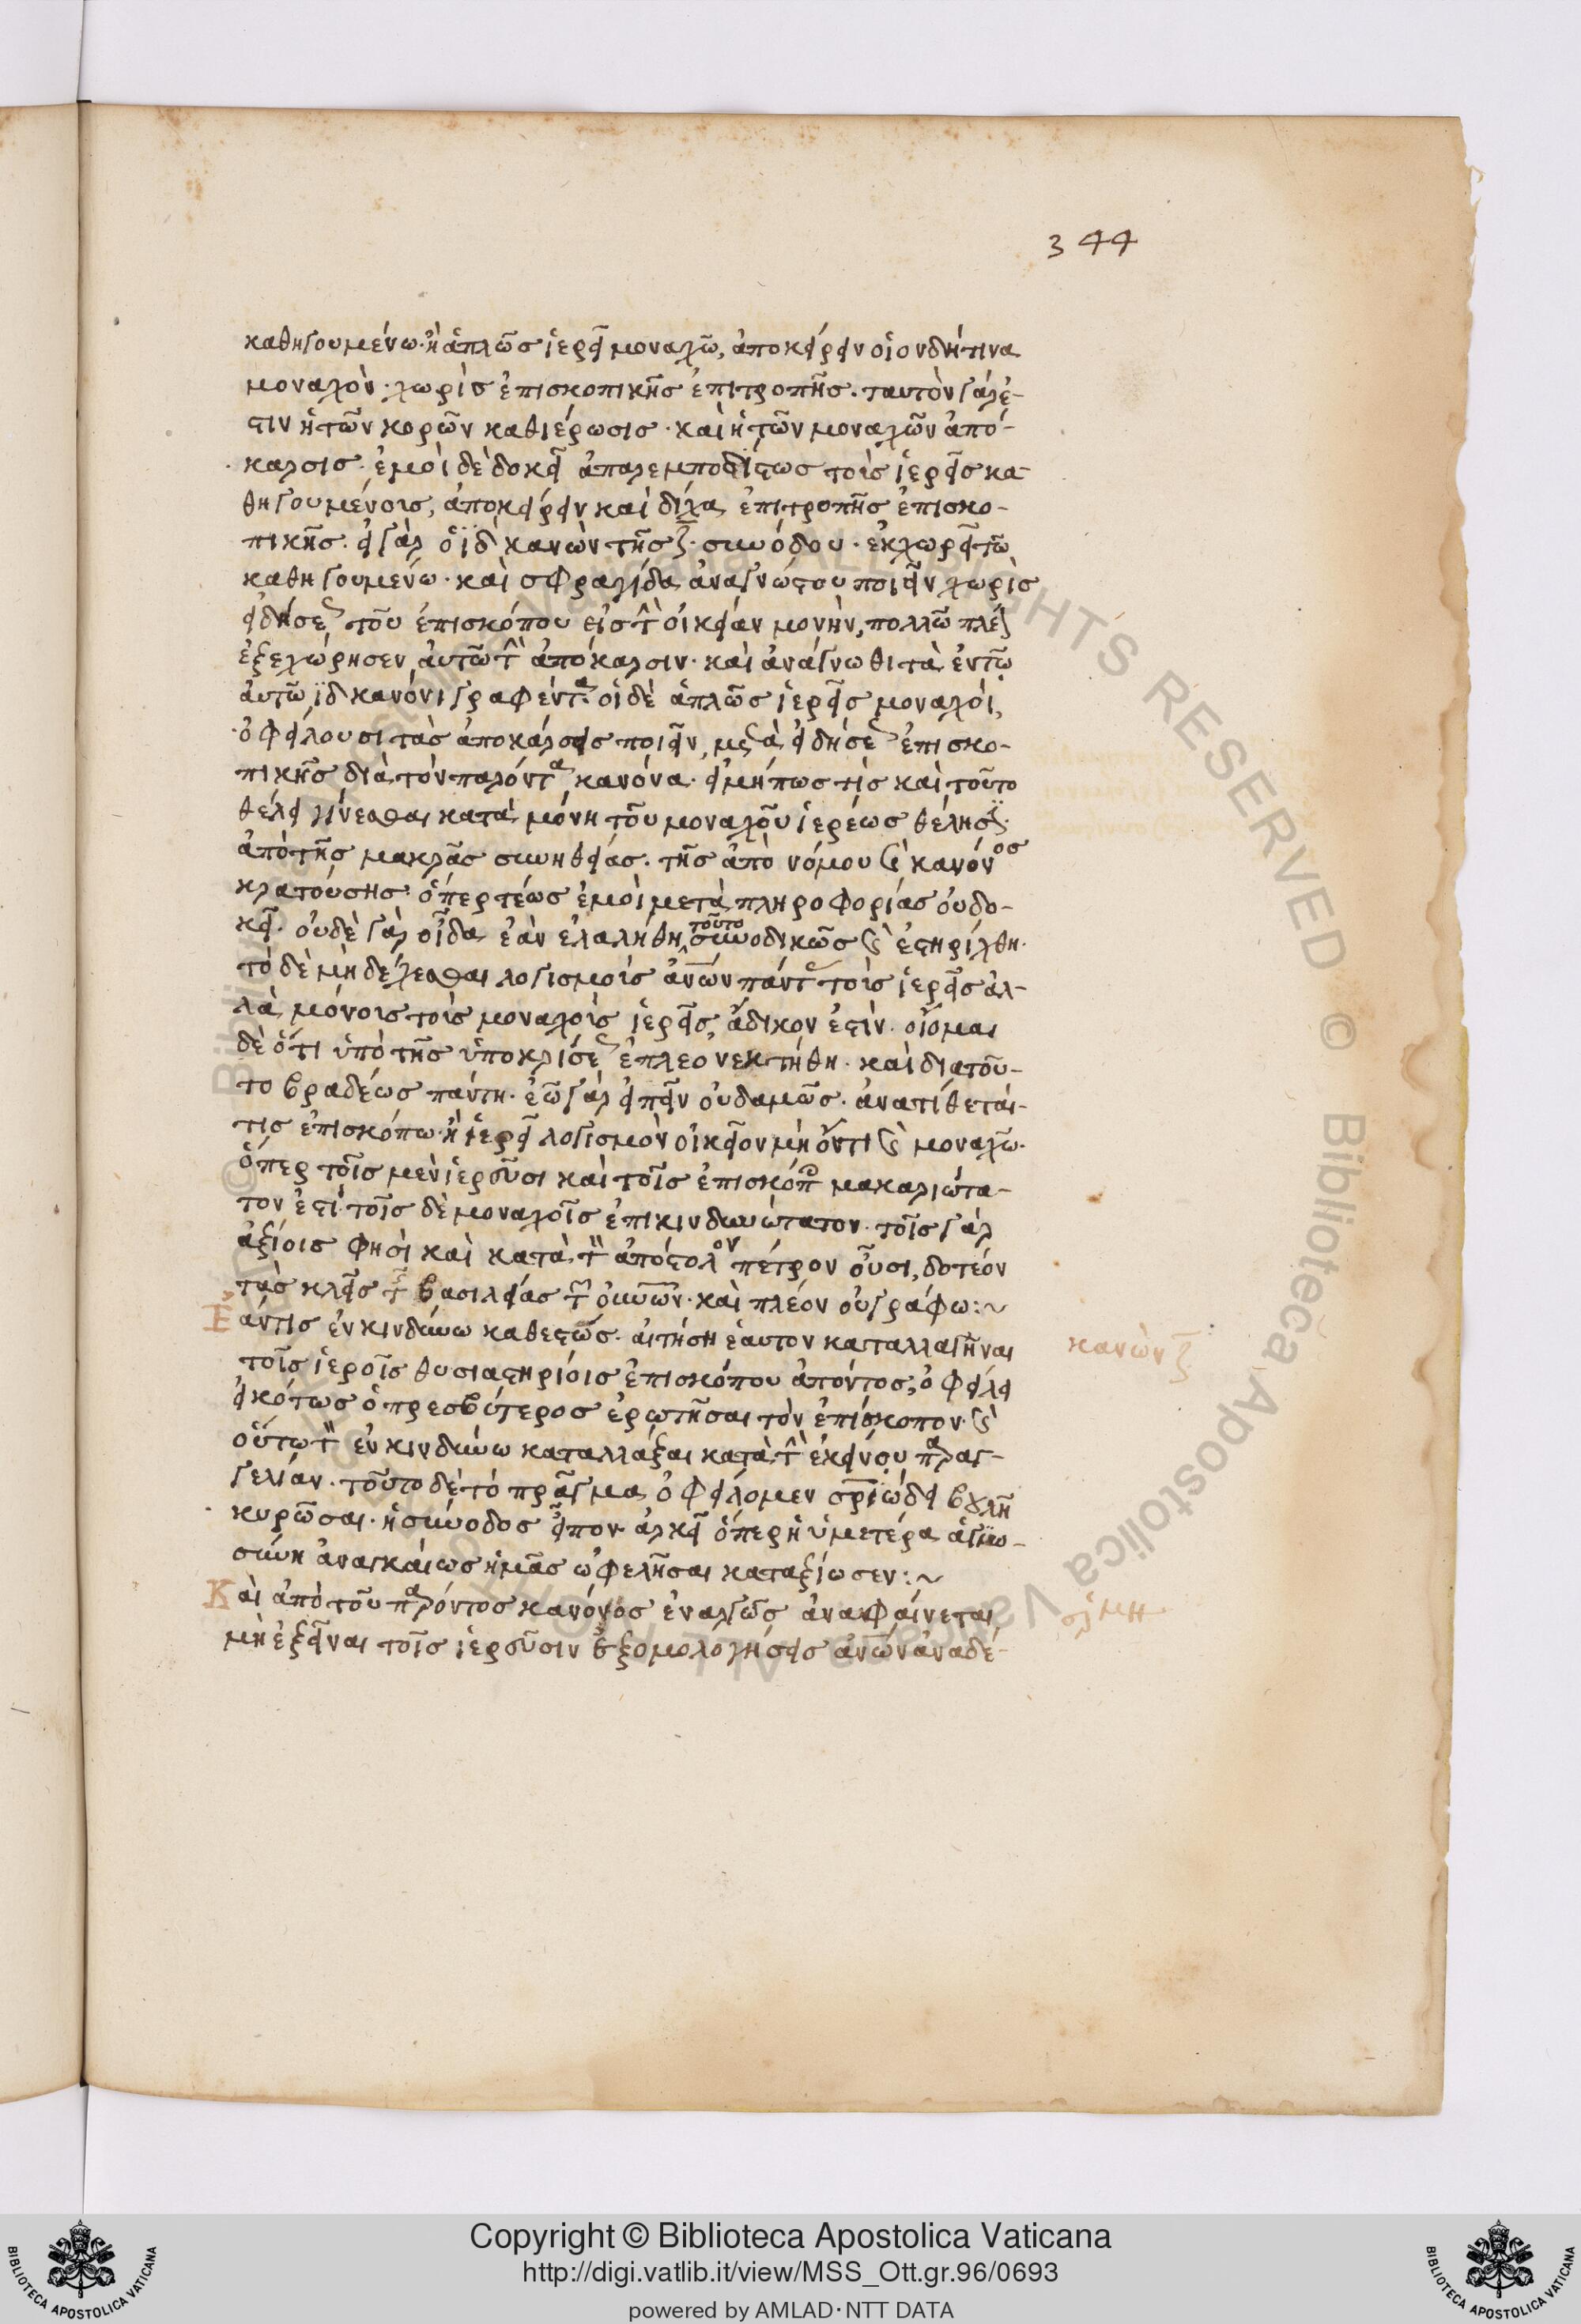 344
καθηγουμένω· ἢ ἁπλῶς ἱερεῖ μοναχῶ, ἀποκείρειν οἱονδήτινα
μοναχὸν· χωρὶς ἐπισκοπικῆς ἐπιτροπῆς. ταυτὸν γάρ ἐ-
στιν ἡ τῶν κορῶν καθιέρωσις· καὶ ἡ τῶν μοναχῶν ἀπό-
καρσις· ἐμοὶ δὲ δοκεῖ ἀπαρεμποδίστως τοῖς ἱερεῦσι κα-
θηγουμένοις, ἀποκείρειν καὶ δίχα ἐπιτροπῆς ἐπισκο-
πικῆς. εἰ γὰρ ὁ ιδ κανὼν τῆς ζ συνόδου· ἐκχωρεῖ τῶ
καθηγουμένω· καὶ σφραγίδα ἀναγνώστου ποιεῖν χωρὶς
εἰδήσε τοῦ ἐπισκόπου εἰς τ οἰκείαν μονὴν, πολλῶ πλέ
ἐξεχώρησεν αὐτῶ τ ἀπόκαρσιν· καὶ ἀνάγνωθι τὰ ἐν τῶ
αὐτῶ ιδ κανόνι γραφέντα· οἱ δὲ ἁπλῶς ἱερεῖς μοναχοὶ,
ὀφείλουσι τὰς ἀποκάρσεις ποιεῖν, μετὰ εἰδήσε ἐπισκο-
πικῆς διὰ τὸν παρόντα κανόνα· εἰ μήπως τὶς καὶ τοῦτο
θέλει γίνεσθαι κατὰ μόνη τοῦ μοναχοῦ ἱερέως θέλησ
ἀπὸ τῆς μακρᾶς συνηθείας· τῆς ἀπὸ νόμου κανόνος
κρατούσης· ὅπερ τέως ἐμοὶ μετὰ πληροφορίας οὐ δο-
κεῖ. οὐδὲ γὰρ οἶδα ἐὰν ἐλαλήθη τοῦτο συνοδικῶς ἐστηρίχθη·
τὸ δὲ μὴ δέχεσθαι λογισμοὺς ἀνων πάντ τοῖς ἱερεῖς ἀλ-
λὰ μόνοις τοῖς μοναχοῖς ἱερεῖς, ἄδικον ἐστὶν. οἶομαι
δὲ ὅτι ὑπὸ τῆς ὑποκρίσε ἐπλεονεκτήθη· καὶ διατοῦ-
το βραδέως πάντη· ἐῶ γὰρ εἰπεῖν οὐδαμῶς· ἀνατίθεται
τις ἐπισκόπω ἢ ἱερεῖ λογισμὸν οἰκεῖον μὴ ὄντι μοναχῶ·
ὅπερ τοῖς μὲν ἱερεῦσι καὶ τοῖς ἐπισκόπ μακαριώτα-
τον ἐστί· τοῖς δὲ μοναχοῖς ἐπικινδυνώτατον. τοῖς γὰρ
ἀξίοις φησὶ καὶ κατὰ τ ἀπόστολον πέτρον οὖσι, δοτέον
τὰς κλεῖς τ βασιλείας τ οὐνων· καὶ πλέον οὐ γράφω:~
Ἐάντις ἐν κινδύνω καθεστῶς· αἰτήση ἑαυτον καταλλαγῆναι
τοῖς ἱεροῖς θυσιαστηρίοις ἐπισκόπου ἀπόντος, ὀφείλει
εἰκότως ὁ πρεσβύτερος ἐρωτῆσαι τὸν ἐπίσκοπον·
οὕτω τ ἐν κινδύνω καταλλάξαι κατὰ τ ἐκείνου παραγ-
γελίαν· τοῦτο δὲ τὸ πρᾶγμα ὀφείλομεν σριώδει βουλῆ
κυρῶσαι· ἡ σύνοδος εἶπον· ἀρκεῖ ὅπερ ἡ ὑμετέρα ἁγιω-
σύνη ἀναγκαίως ἡμᾶς ὠφελῆσαι καταξίωσεν:~
Καὶ ἀπὸ τοῦ παρόντος κανόνος ἐναργῶς ἀναφαίνεται
μὴ ἐξεῖναι τοῖς ἱερεῦσιν ἐξομολογήσεις ἀνων ἀναδέ-
κανὼν ζ
Copyright © Biblioteca Apostolica Vaticana
http://digi.vatlib.it/view/MSS_Ott.gr.96/0693
powered by AMLAD·NTT DATA
BIBLIOTECA APOSTOLICA VATICANA
BIBLIOTECA APOSTOLICA VATICANA
© Biblioteca Apostolica Vaticana ALL RIGHTS RESERVED © Biblioteca Apostolica Vaticana ALL RIGHTS RESERVED